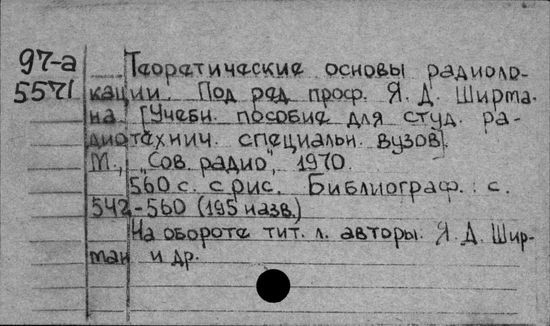 97-а Теоретические основы радиоло-
5571 кации. Под ред. проф. Я. Д. Ширма-
на. [Учебн. пособие для студ. ра-
диотехнич. специальн. вузов].
М., "Сов. радио", 1970.
560 с. с рис. Библиограф.: с.
542-560 (195 назв.)
На обороте тит. л. авторы: Я. Д. Шир-
ман и др.